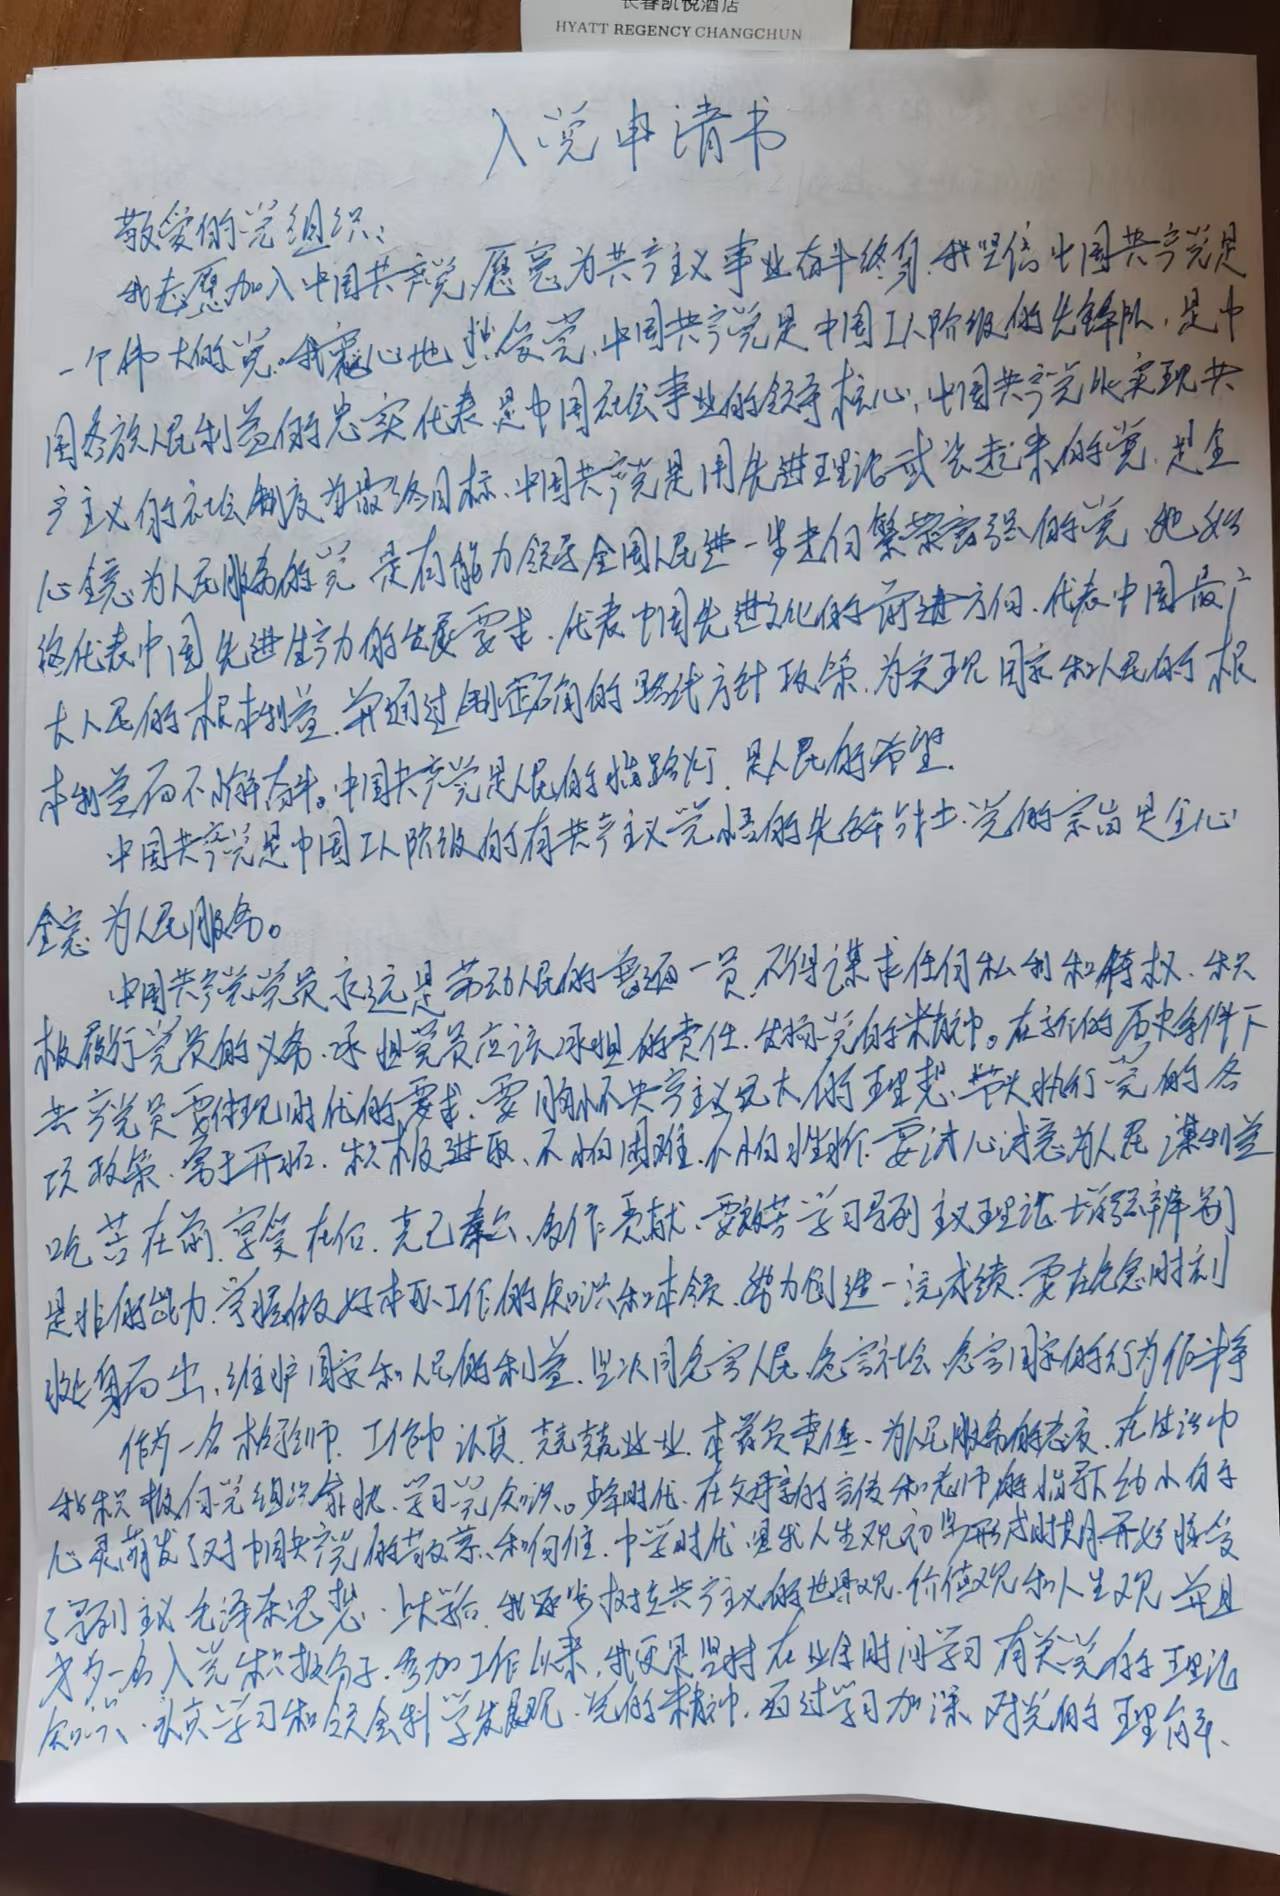 长春凯悦酒店
HYATT REGENCY CHANGCHUN
入党申请书
敬爱的党组织:
我志愿加入中国共产党,愿意为共产主义事业奋斗终身.我坚信中国共产党是
一个伟大的党。我衷心地热爱党,中国共产党是中国工人阶级的先锋队,是中
国各族人民利益的忠实代表,是中国社会事业的领导核心,中国共产党以实现共
产主义的社会制度为最终目标,中国共产党是用先进理论武装起来的党,是全
心全意为人民服务的党,是有能力领导全国人民进一步走向繁荣富强的党,她始
终代表中国先进生产力的发展要求,代表中国先进文化的前进方向,代表中国最广
大人民的根本利益,并通过制定正确的路线方针政策,为实现国家和人民的根
本利益而不懈奋斗。中国共产党是人民的指路灯,是人民的希望.
中国共产党是中国工人阶级的有共产主义觉悟的先锋战士.党的宗旨是全心
全意为人民服务。
中国共产党党员永远是劳动人民的普通一员,不得谋求任何私利和特权,积
极履行党员的义务,承担党员应该承担的责任,发扬党的精神。在新的历史条件下
共产党员要体现时代的要求,要胸怀共产主义远大的理想,带头执行党的各
项政策,勇于开拓,积极进取,不怕困难,不怕牺牲,要诚心诚意为人民谋利益
吃苦在前,享受在后,克己奉公,多作贡献,要刻苦学习马列主义理论,增强辨别
是非的能力,掌握做好本职工作的知识和本领,努力创造一流成绩,要在危急时刻
挺身而出,维护国家和人民的利益,坚决同危害人民,危害社会,危害国家的行为作斗争
作为一名 工作中认真,兢兢业业,本着负责任,为人民服务的态度,在生活中
我积极向党组织靠拢,学习党知识。少年时代,在父母亲的言传和老师的指导下幼小的
心灵萌发了对中国共产党的敬慕和向往,中学时代,是我人生观初步形成时期,开始接受
了马列主义毛泽东思想,上大学后,我逐步树立共产主义的世界观,价值观和人生观,并且
成为一名入党积极分子,参加工作以来,我更是坚持在业余时间学习有关党的理论
知识,认真学习和领会科学发展观,党的精神,通过学习加深对党的理解,